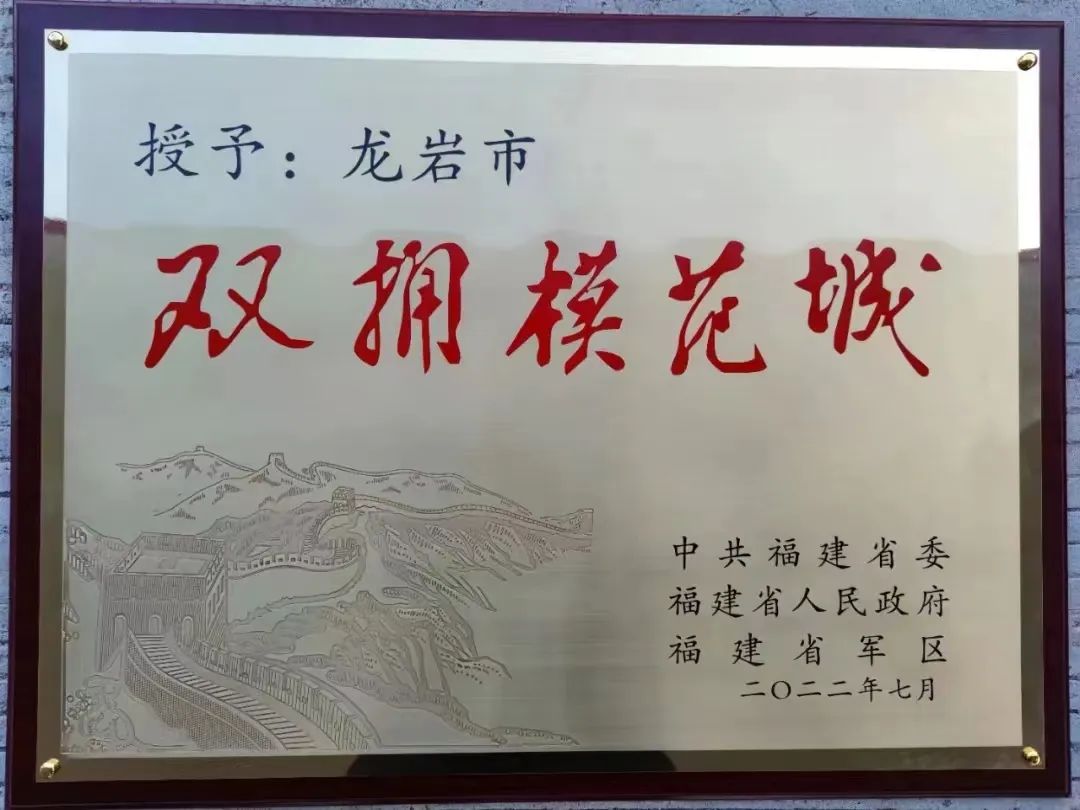 授予：龙岩市
双拥模范城
中共福建省委
福建省人民政府
福建省军区
二〇二二年七月